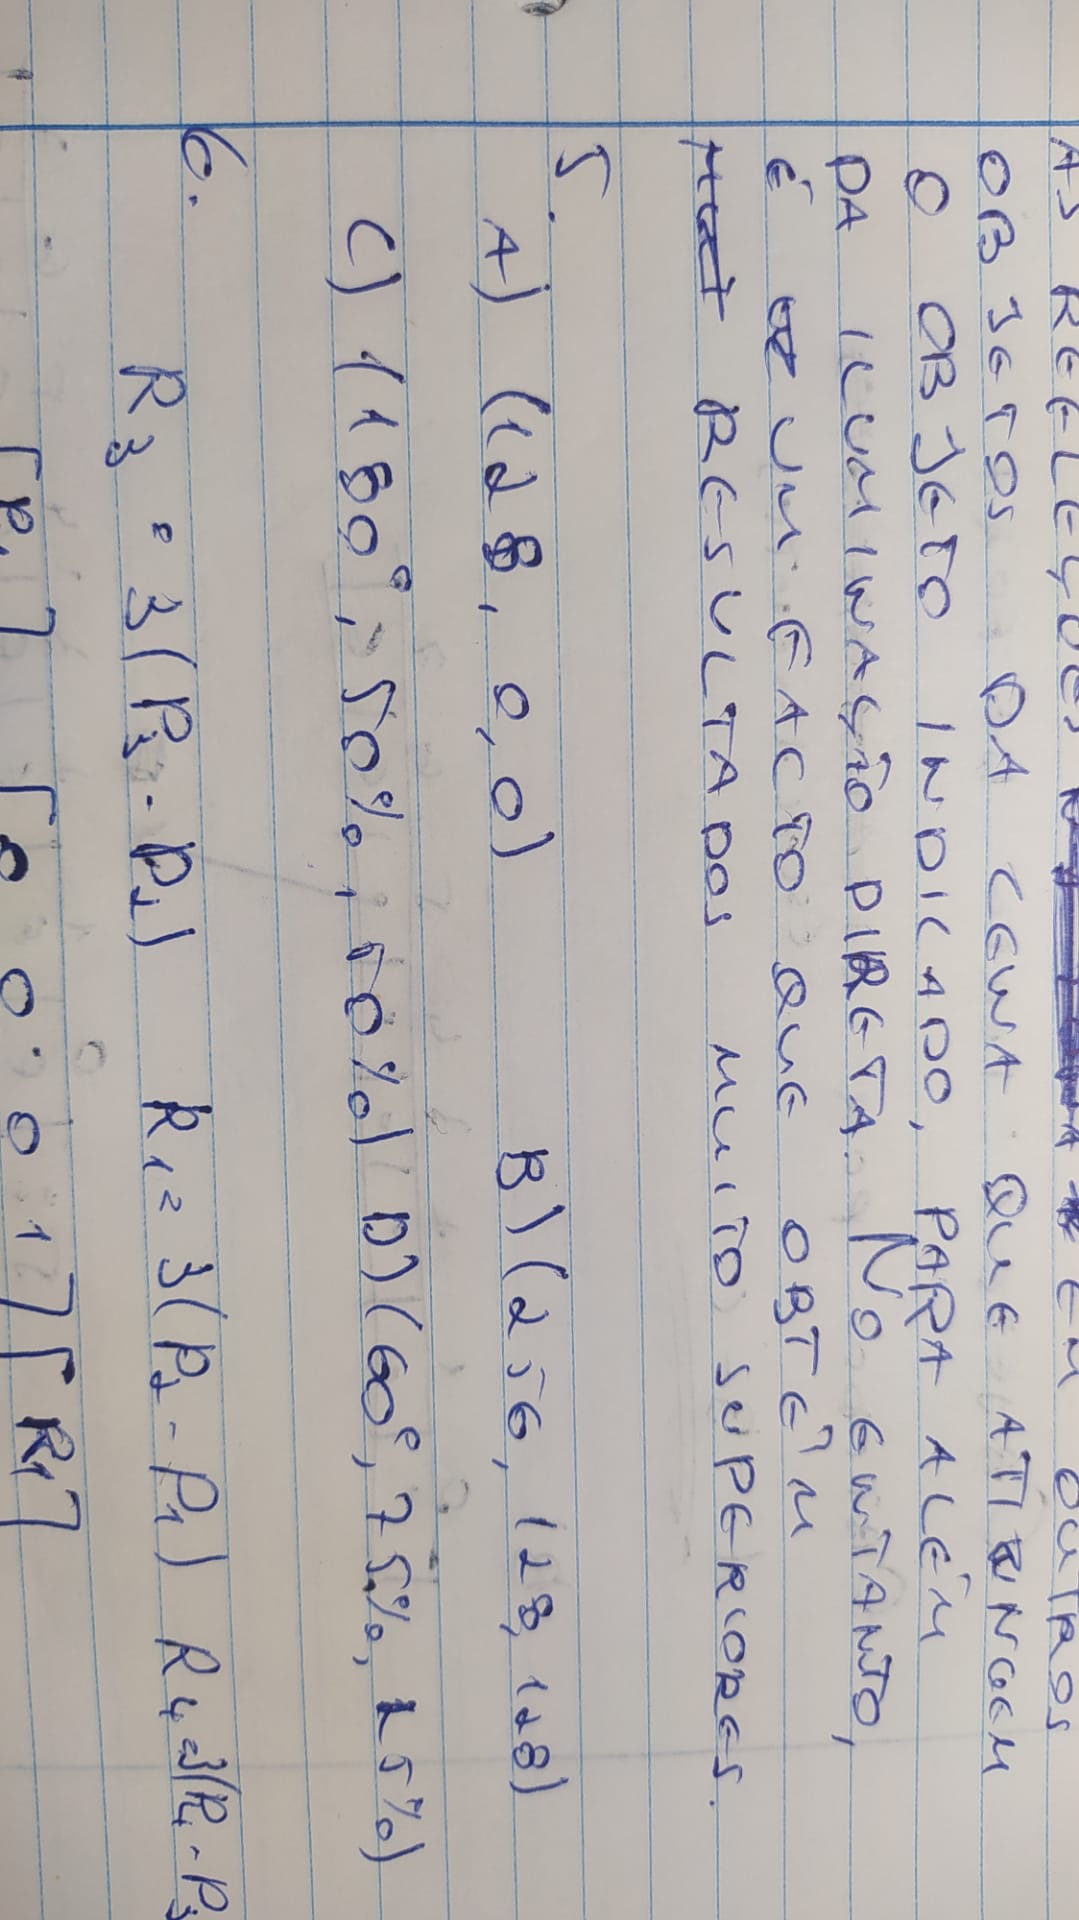 AS REFLEÇÕES EM OUTROS
OBJETOS DA CENA QUE ATINGEM
O OBJETO INDICADO, PARA ALÉM
DA ILUMINAÇÃO DIRETA. NO ENTANTO,
É UM FACTO QUE OBTÉM
RESULTADOS MUITO SUPERIORES.
5.
A) (128, 0, 0) B) (256, 128, 128)
C) (180°, 50%, 50%) D) (60°, 75%, 25%)
6.
R3 = 3(P3 - P2) R1 = 3(P2 - P1) R4 = 3(P4 - P3
[P1] [0 0 0 1] [R1]